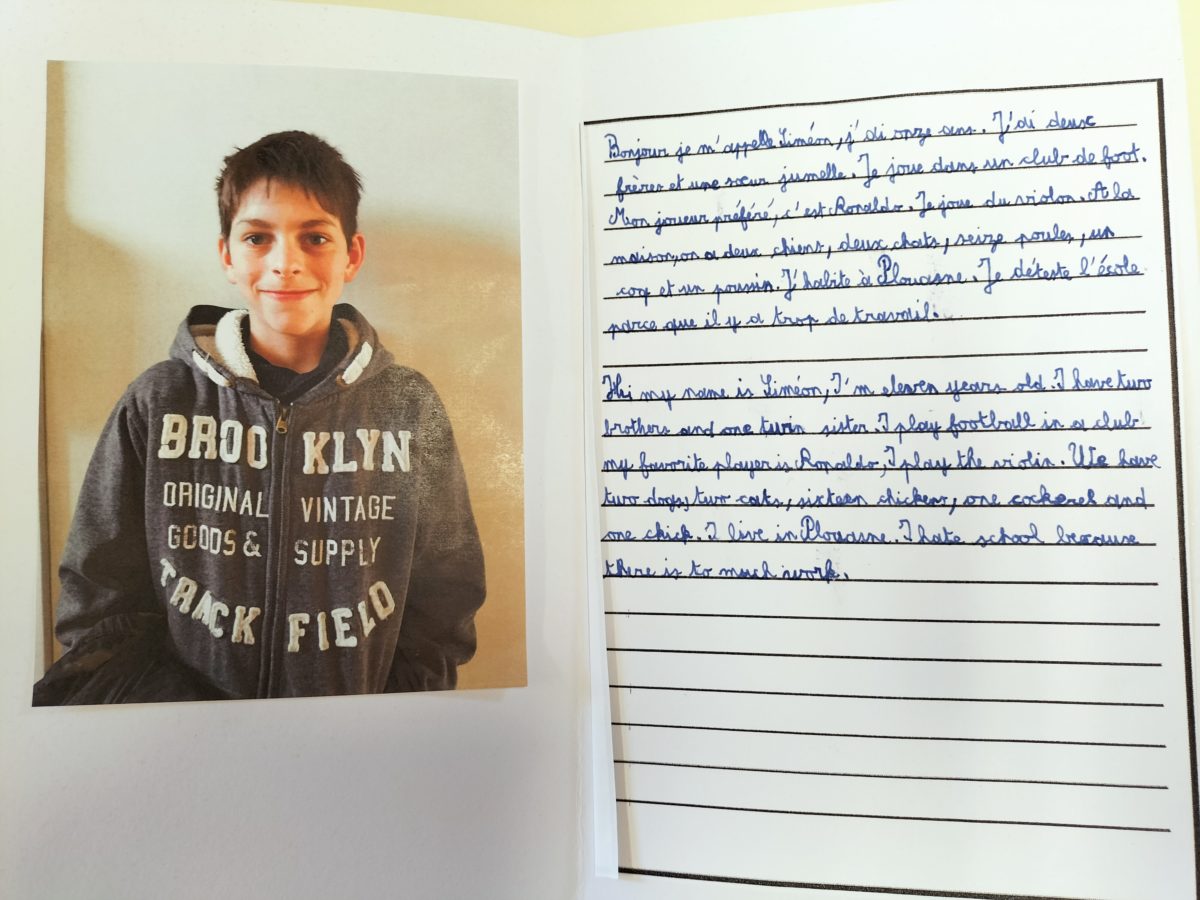 BROOKLYN
ORIGINAL VINTAGE
GOODS & SUPPLY
TRACK FIELD
Bonjour je m'appelle Siméon, j'ai onze ans. J'ai deux
frères et une sœur jumelle. Je joue dans un club de foot.
Mon joueur préféré, c'est Ronaldo. Je joue du violon. A la
maison, on a deux chiens, deux chats, seize poules, un
coq et un poussin. J'habite à Plouasne. Je déteste l'école
parce que il y a trop de travail.
Hi, my name is Siméon, I'm eleven years old. I have two
brothers and one twin sister. I play football in a club
my favorite player is Ronaldo, I play the violin. We have
two dogs, two cats, sixteen chickens, one cockerel and
one chick. I live in Plouasne. I hate school because
there is to much work.